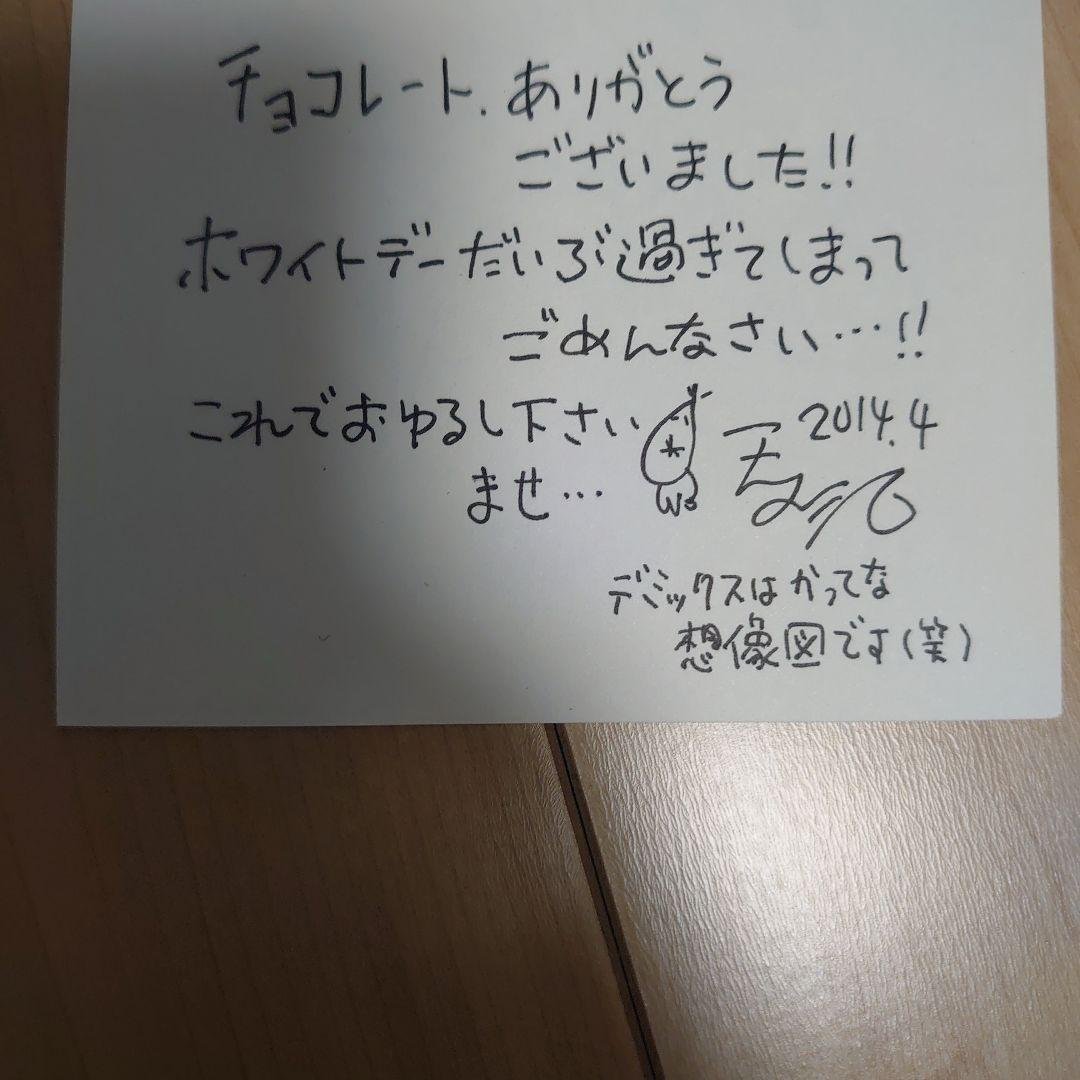 チョコレート、ありがとう
ございました!!
ホワイトデーだいぶ過ぎてしまって
ごめんなさい…!!
これでおゆるし下さい
ませ…
2014.4
デミックスはかってな
想像図です(笑)